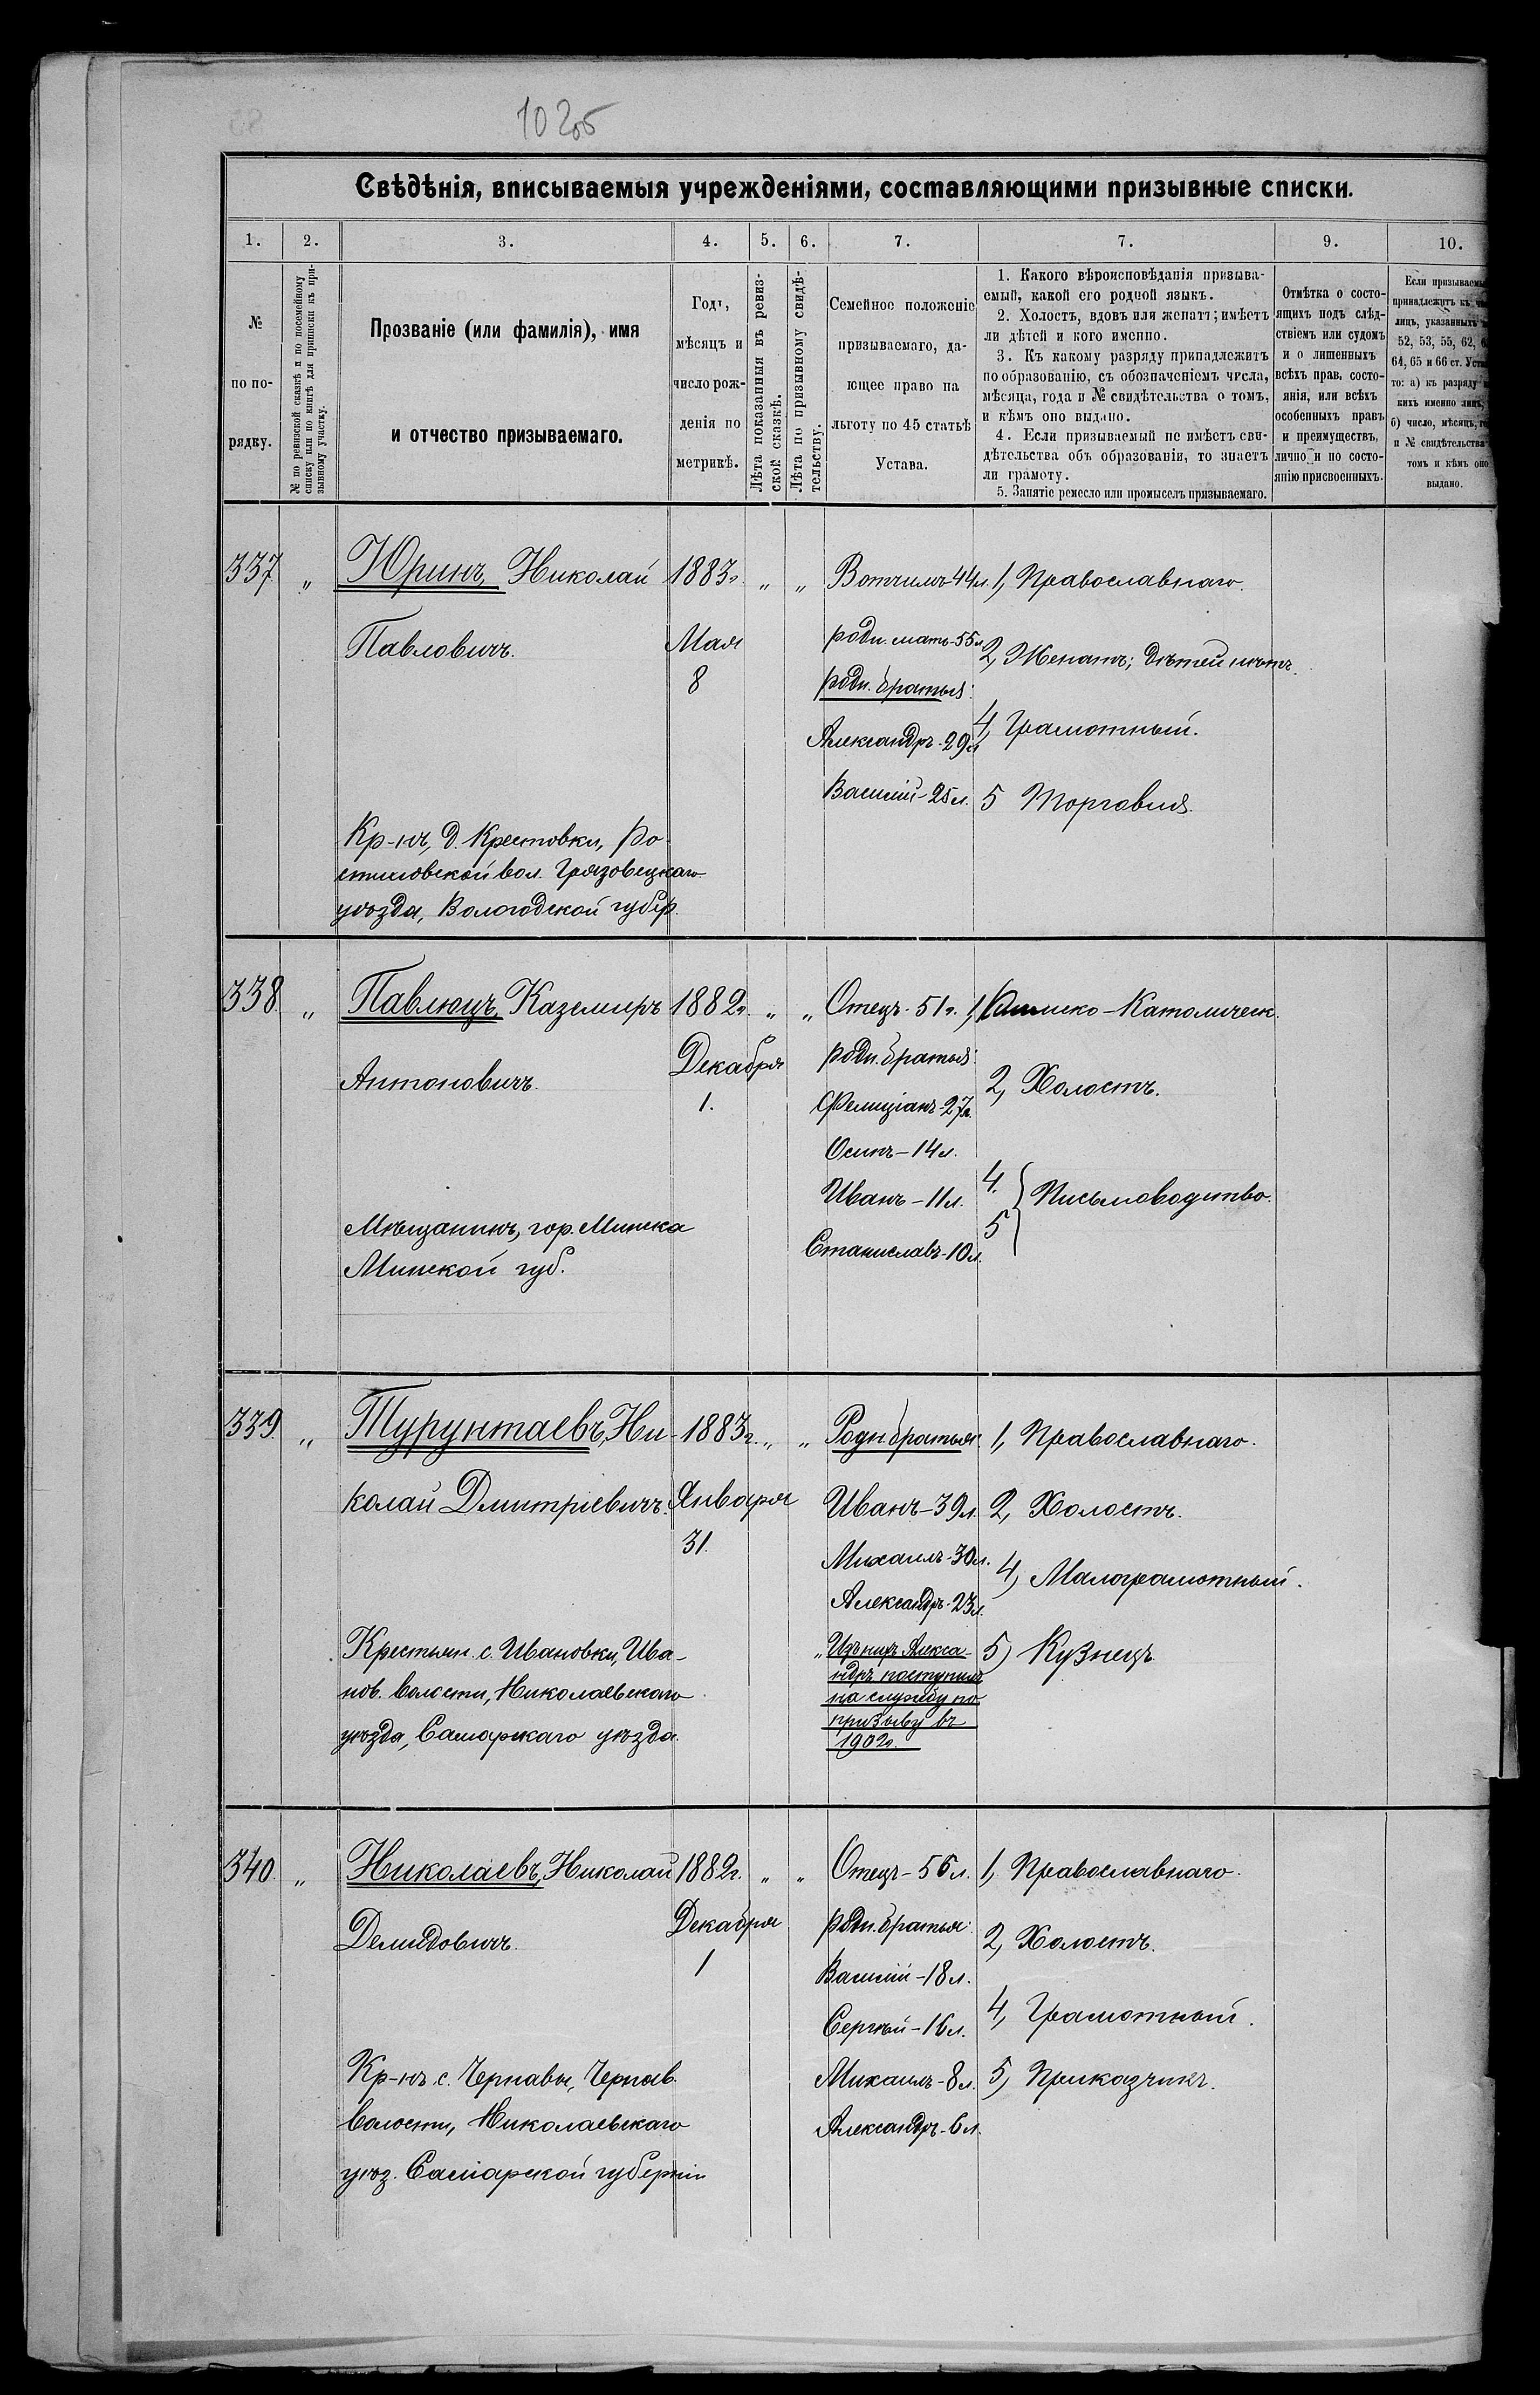 10205
Свѣдѣнія, вписываемыя учрежденіями, составляющими призывные списки.
1. 2. 3. 4. 5. 6. 7. 7. 9. 10.
№
по по-
рядку.
№ по ревизской сказкѣ и по посемейному
списку или по книгѣ для приписки къ при-
зывному участку.
Прозваніе (или фамилія), имя
и отчество призываемаго.
Годъ,
мѣсяцъ и
число рож-
денія по
метрикѣ.
Лѣта показанныя въ ревиз-
ской сказкѣ.
Лѣта по призывному свидѣ-
тельству.
Семейное положеніе
призываемаго, да-
ющее право на
льготу по 45 статьѣ
Устава.
1. Какого вѣроисповѣданія призыва-
емый, какой его родной языкъ.
2. Холостъ, вдовъ или женатъ; имѣетъ
ли дѣтей и кого именно.
3. Къ какому разряду принадлежитъ
по образованію, съ обозначеніемъ числа,
мѣсяца, года и № свидѣтельства о томъ,
и кѣмъ оно выдано.
4. Если призываемый не имѣетъ сви-
дѣтельства объ образованіи, то знаетъ
ли грамоту.
5. Занятіе ремесло или промыселъ призываемаго.
Отмѣтка о состо-
ящихъ подъ слѣд-
ствіемъ или судомъ
и о лишенныхъ
всѣхъ прав, состо-
янія, или всѣхъ
особенныхъ правъ
и преимуществъ,
лично и по состо-
янію присвоенныхъ.
Если призываемы
принадлежитъ къ
лицъ, указанныхъ
52, 53, 55, 62,
64, 65 и 66 ст. Уст
то: а) къ разряду
кихъ именно лицъ,
б) число, мѣсяцъ,
и № свидѣтельства
томъ и кѣмъ оно
выдано.
337 „ Юринъ, Николай 1883г. „ „ Вотчимъ 44л. 1, Православнаго.
Павловичъ. Мая родн. мать-55л. 2, Женатъ; дѣтей нѣтъ.
8 родн. братья:
Александръ-29л. 4, Грамотный.
Василій-25л. 5 Торговля.
Кр-нъ, д. Крестовки, Ро-
стиловской вол. Грязовецкаго
уѣзда, Вологодской губер.
338. „ Павлюцъ, Каземиръ 1882г. „ „ Отецъ-51г. 1, -Католическ.
Антоновичъ. Декабря родн. братья: 2, Холостъ.
1. Фелиціанъ-27л.
Осипъ-14л.
Иванъ-11л. 4. } Письмоводство.
Станиславъ-10л. 5
Мѣщанинъ, гор. Минска
Минской губ.
339. „ Турунтаевъ, Ни- 1883г. „ „ Родн братья: 1, Православнаго.
колай Дмитріевичъ. Января Иванъ-39л. 2, Холостъ.
31. Михаилъ-30л. 4, Малограмотный.
Александръ-23л.
Крестьян. с. Ивановки, Ива- „Изъ нихъ Алекса- 5) Кузнецъ
нов. волости, Николаевскаго ндръ поступилъ
уѣзда, Самарскаго уѣзда. на службу по
призыву въ
1902г.
340. „ Николаевъ, Николай 1882г. „ „ Отецъ-56л. 1, Православнаго.
Демидовичъ. Декабря родн. братья: 2, Холостъ.
1 Василій-18л.
Сергѣй-16л. 4, Грамотный.
Кр-нъ с. Чернавы, Чернав. Михаилъ-8л. 5, Приказчикъ.
волости, Николаевскаго Александръ-6л.
уѣз. Самарской губерніи